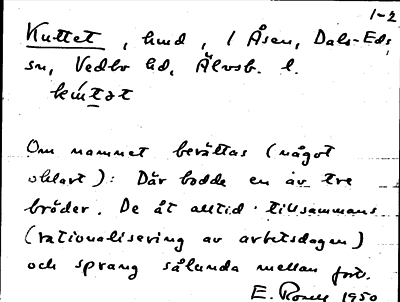 1-2
Kuttet, hmd, i Åsen, Dals-Eds
sn, Vedbo hd, Älvsb. l.
kút:ət
Om namnet berättas (något
oklart): Där bodde en av tre
bröder. De åt alltid tillsammans
(rationalisering av arbetsdagen)
och sprang sålunda mellan
E. 1950